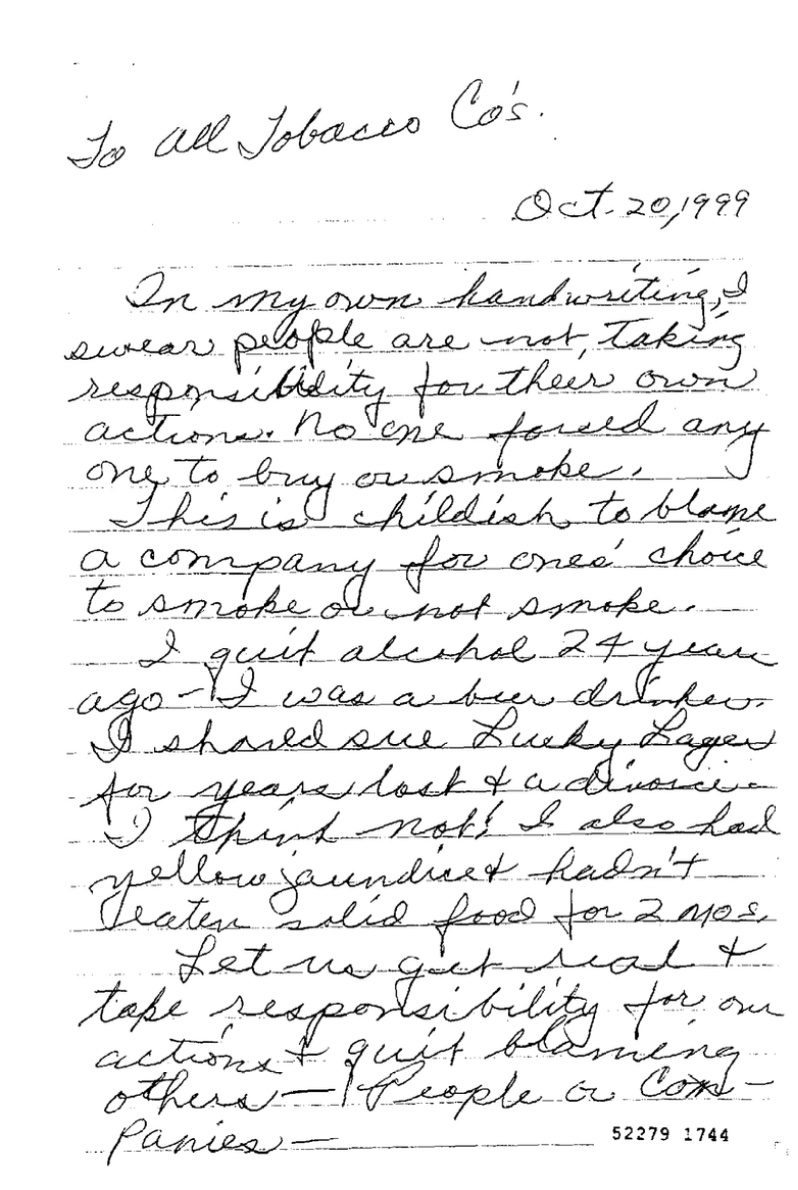 To All Tobacco Co's.
Oct. 20, 1999
In my own handwriting, I
swear people are not taking
responsibility for their own
actions. No one forced any
one to buy or smoke.
This is childish to blame
a company for ones' choice
to smoke or not smoke.
I quit alcohol 24 years
ago - I was a beer drinker.
I should sue Lucky Lager
for years lost & a divorce -
I think not! I also had
yellow jaundice & hadn't
eaten solid food for 2 mos.
Let us get real &
take responsibility for our
actions & quit blaming
others - People or Com-
panies -
52279 1744